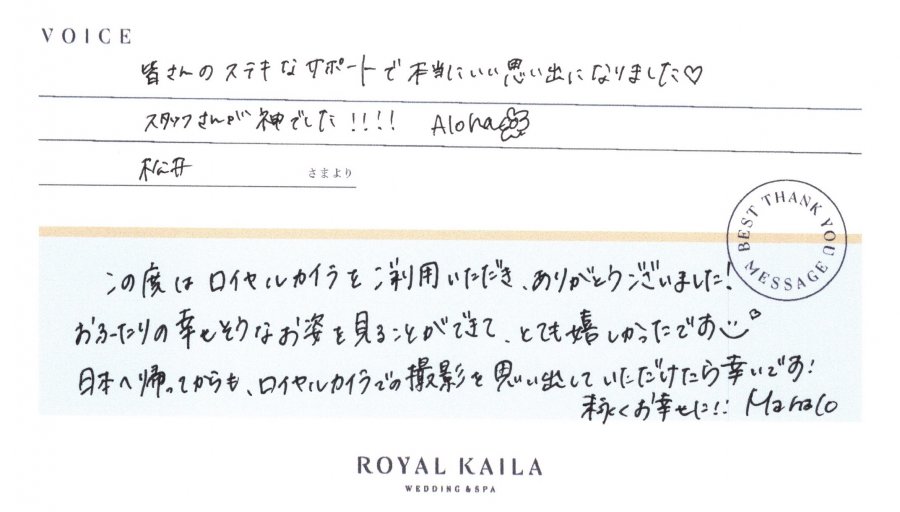 VOICE
皆さんのステキなサポートで本当にいい思い出になりました♡
スタッフさんが神でした!!!! Aloha
松井 さまより
BEST THANK YOU MESSAGE
この度はロイヤルカイラをご利用いただき、ありがとうございました!
おふたりの幸せそうなお姿を見ることができて、とても嬉しかったです
日本へ帰ってからも、ロイヤルカイラでの撮影を思い出していただけたら幸いです!
末永くお幸せに!! Manaco
ROYAL KAILA
WEDDING & SPA